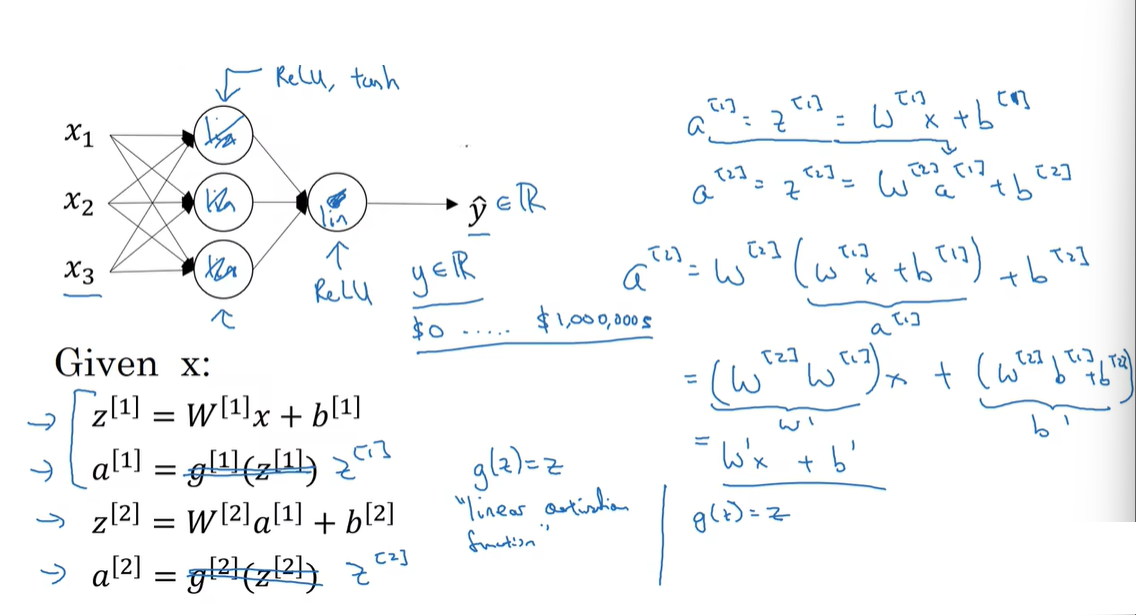 ReLU, tanh
x₁
x₂
x₃
lin
ŷ ∈ ℝ
ReLU
y ∈ ℝ
$0 ..... $1,000,000s
Given x:
→ z[1] = W[1]x + b[1]
→ a[1] = g[1](z[1]) z[1]
→ z[2] = W[2]a[1] + b[2]
→ a[2] = g[2](z[2]) z[2]
g(z) = z
"linear activation
function"
a[1] = z[1] = W[1]x + b[1]
a[2] = z[2] = W[2]a[1] + b[2]
a[2] = W[2](W[1]x + b[1]) + b[2]
a[1]
= (W[2]W[1])x + (W[2]b[1] + b[2])
W' b'
= W'x + b'
g(z) = z